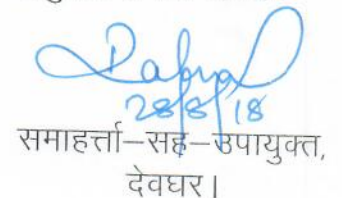 28/8/18
समाहर्त्ता–सह–उपायुक्त,
देवघर।